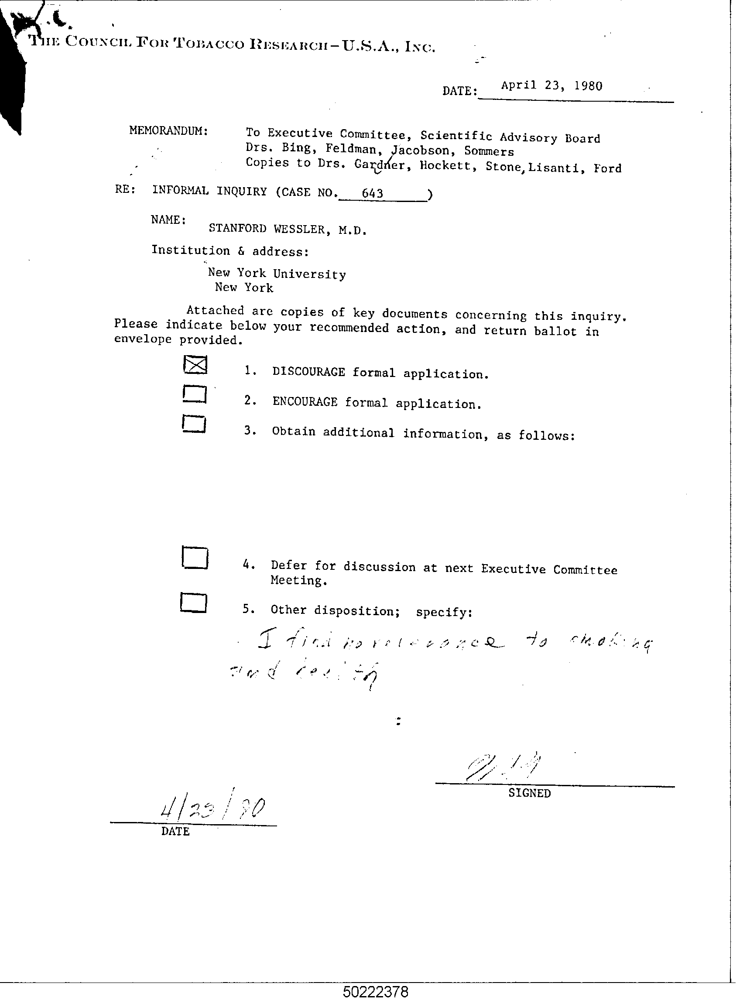 THE COUNCIL FOR TOBACCO RESEARCH-U.S.A., INC.
DATE: April 23, 1980
MEMORANDUM: To Executive Committee, Scientific Advisory Board
Drs. Bing, Feldman, Jacobson, Sommers
Copies to Drs. Gardner, Hockett, Stone, Lisanti, Ford
RE: INFORMAL INQUIRY (CASE NO. 643 )
NAME: STANFORD WESSLER, M.D.
Institution & address:
New York University
New York
Attached are copies of key documents concerning this inquiry.
Please indicate below your recommended action, and return ballot in
envelope provided.
1. DISCOURAGE formal application.
2. ENCOURAGE formal application.
3. Obtain additional information, as follows:
4. Defer for discussion at next Executive Committee
Meeting.
5. Other disposition; specify:
I find no relevance to smoking
and health
SIGNED
4/23/80
DATE
50222378